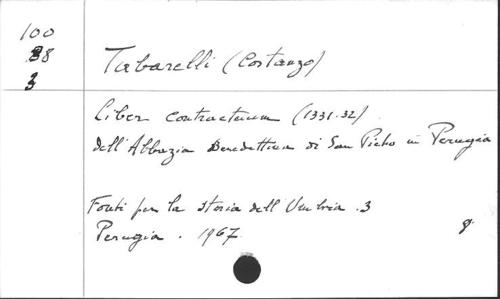 100
38
3
Tabarelli (Costanzo)
Liber contractuum (1331-32)
dell'Abbazia Benedettina di San Pietro in Perugia
Fonti per la storia dell'Umbria . 3
Perugia . 1967